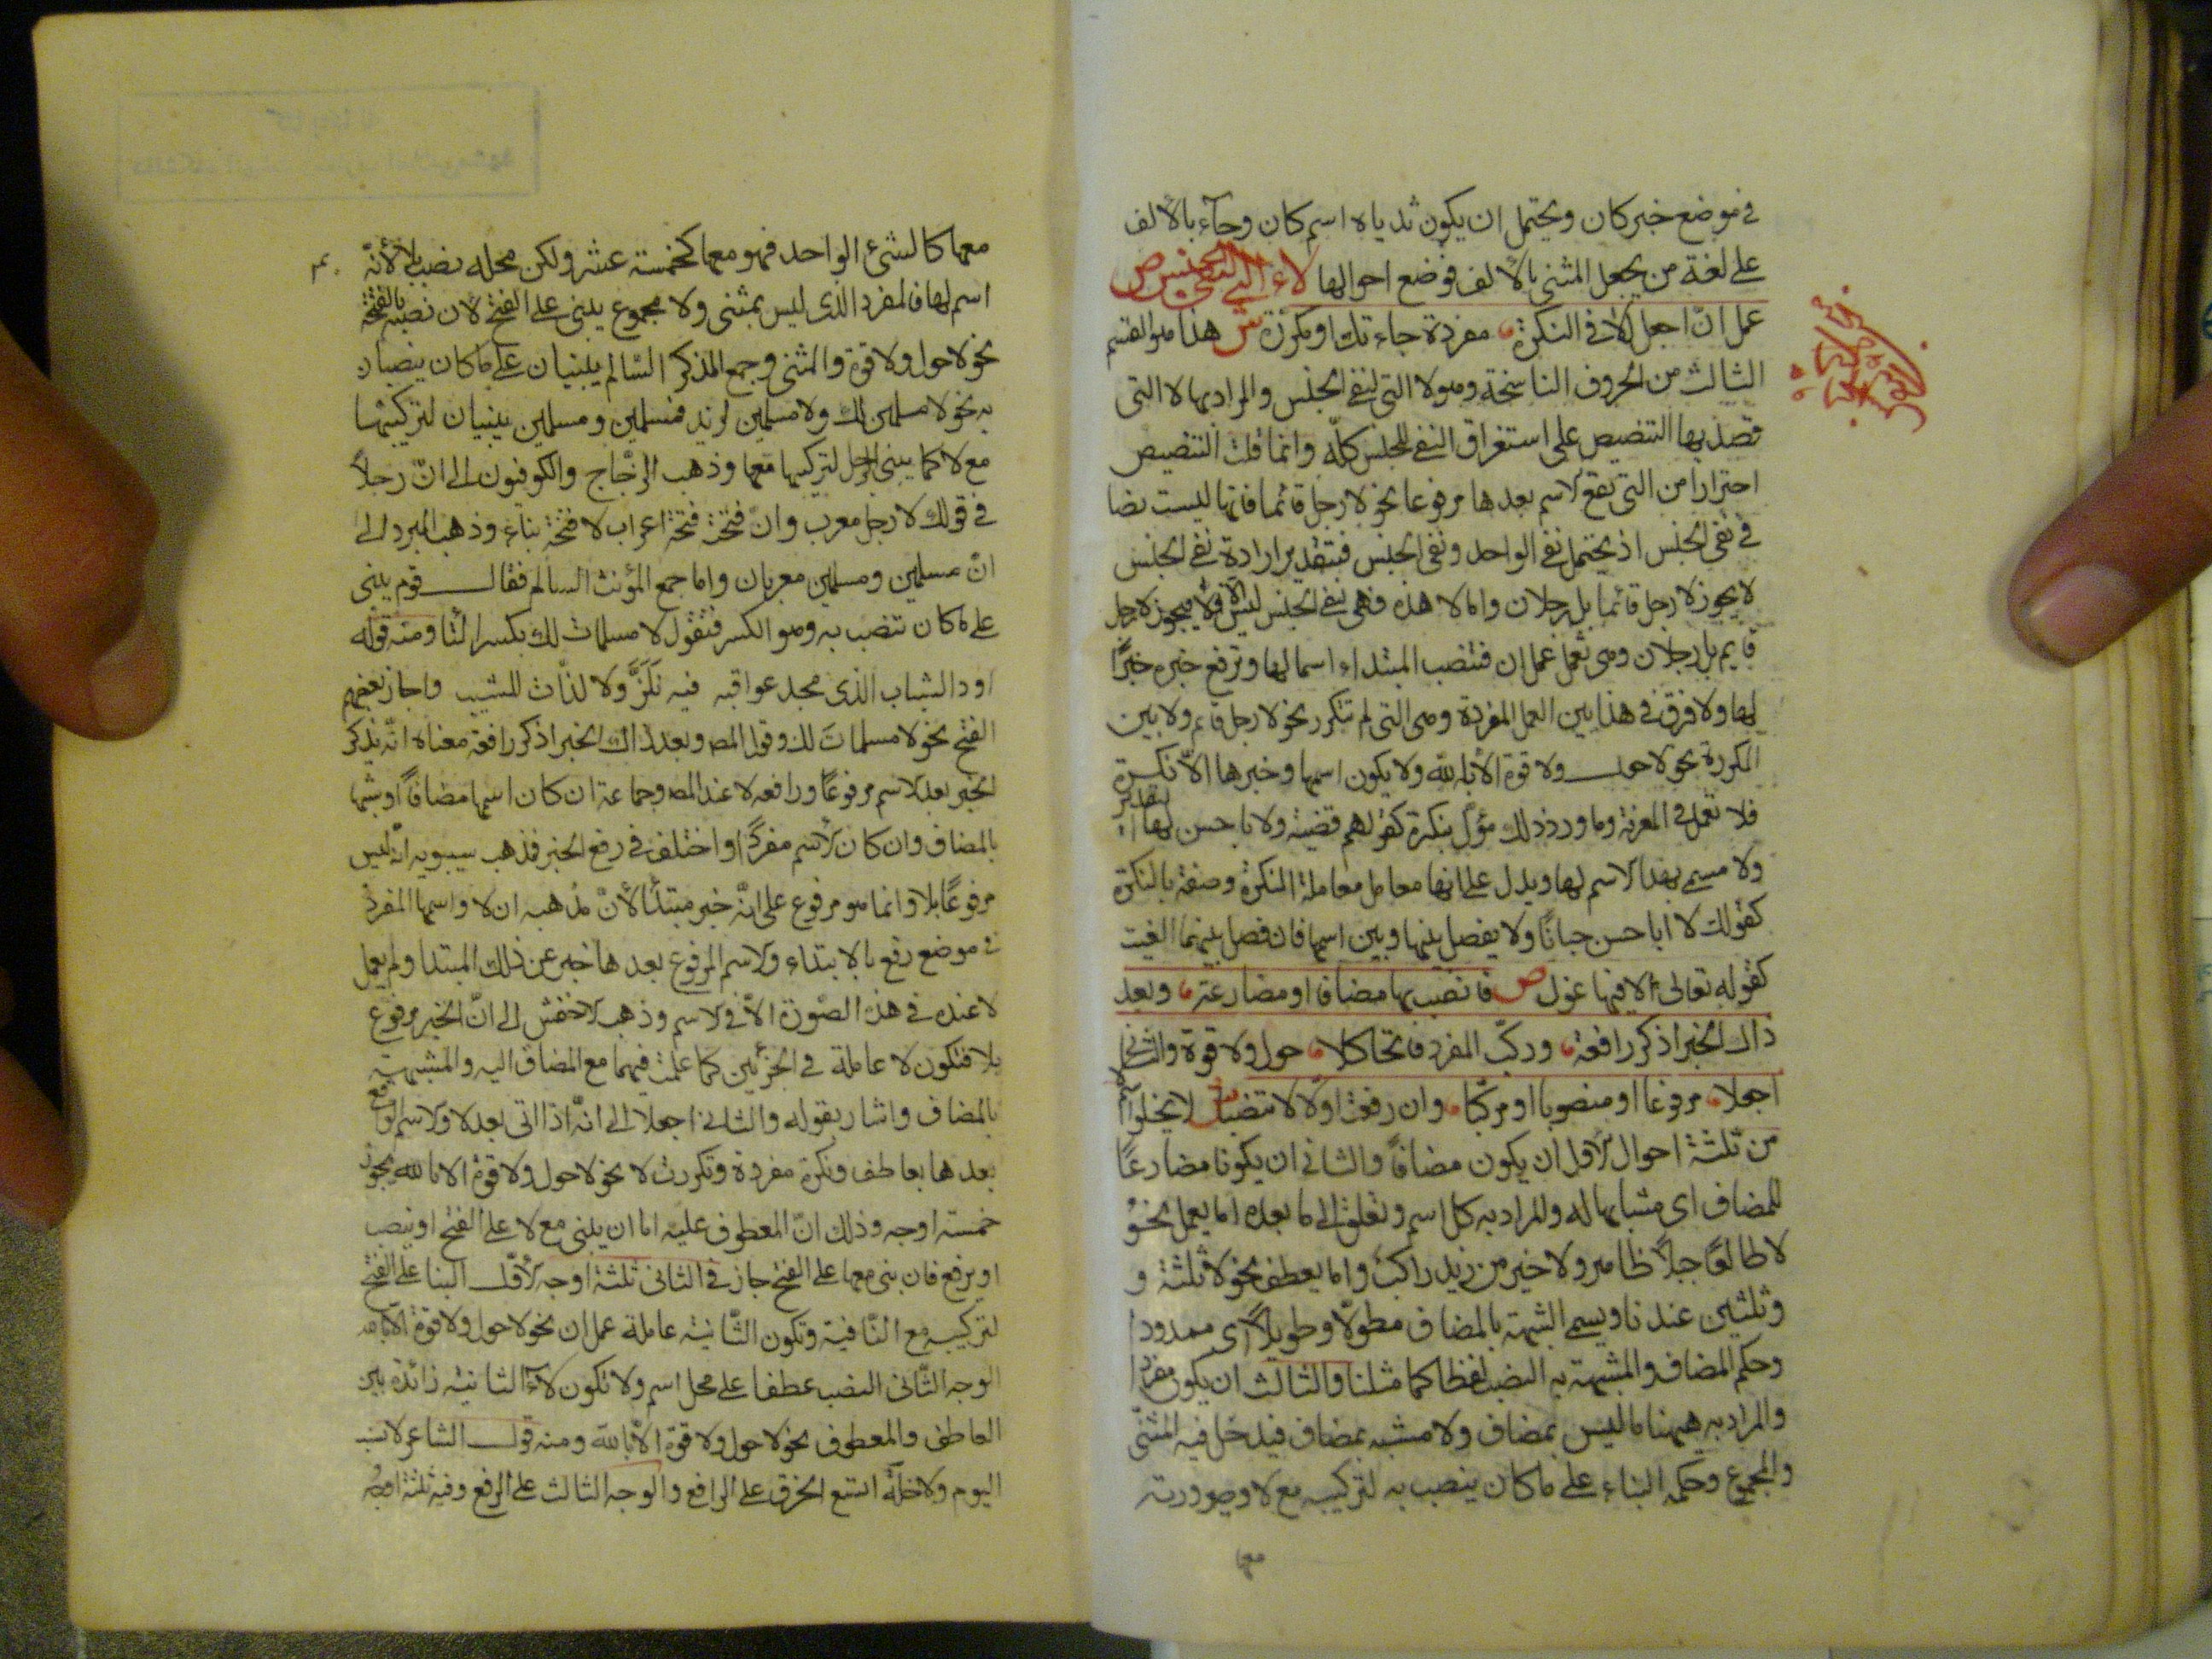 في موضع خبر كان ويحتمل ان يكون ثدياه اسم كان وجآء بالألف
على لغة من يجعل المثنى بالألف في وضع احوالها لاء التي لنفي الجنس ص
عمل انّ اجعل للا في النكرة مفردة جاءتك او مكررة ش هذا هو القسم
الثالث من الحروف الناسخة وهو لا التي لنفي الجنس والمراد بها لا التي
قصد بها التنصيص على استغراق النفي للجنس كلّه وانما قلت التنصيص
احترازا من التي يقع الاسم بعدها مرفوعا نحو لا رجل قائما فانها ليست نصا
في نفي الجنس اذ يحتمل نفي الواحد ونفي الجنس فبتقدير ارادة نفي الجنس
لا يجوز لا رجل قائما بل رجلان واما لا هذه فهي لنفي الجنس ليس الا فلا يجوز لا رجل
قايم بل رجلان وهي تعمل عمل ان فتنصب المبتداء اسما لها وترفع خبره خبرًا
لها ولا فرق في هذا بين العمل المفردة وهي التي لم تتكرر نحو لا رجل قايم ولا بين
المكررة نحو لا حول ولا قوة الا بالله ولا يكون اسمها وخبرها الّا نكرة
فلا تعمل في المعرفة وما ورد ذلك مؤل بنكرة كقولهم قضية ولا ابا حسن لها
ولا مسمى بهذا الاسم لها ويدل على انها معامل معاملة النكرة وصفه بالنكرة
كقولك لا ابا حسن جبانًا ولا يفصل بينها وبين اسمها فان فصل بينهما الغيت
كقوله تعالى لا فيها غول ص فانصب بها مضافا او مضارعه وبعد
ذاك الخبر اذكر رافعة وركّب المفرد فاتحا كلا حول ولا قوة والثاني
اجعلا مرفوعا او منصوبا او مركّبا وان رفعت اولا لا تنصبا ش لا يخلو
من ثلثة احوال الاول ان يكون مضافًا والثاني ان يكون مضارعًا
للمضاف اى مشابها له والمراد به كل اسم وتعلق الى ما بعده اما يعمل نحو
لا طالعًا جبلاً ظاهر ولا خير من زيد راكب واما يعطف نحو لا ثلثة و
وثلثين عندنا ويسمى الشبيه بالمضاف مطولًا وطويلاً اى ممدودا
وحكم المضاف والمشبه به النصب لفظا كما مثلنا والثالث ان يكون مفردا
والمراد به هيهنا ما ليس بمضاف ولا مشبه بمضاف فيدخل فيه المثنى
والمجموع وحكمه البناء على ما كان ينصب به لتركيبه مع لا وصيرورته
معها
معها كالشئ الواحد فهو معها كخمسة عشر ولكن محله نصب بلا لأنّه
اسم لها فالمفرد الذى ليس بمثنى ولا مجموع يبنى على الفتح لأن نصبه بالفتحة
نحو لا حول ولا قوة والمثنى وجمع المذكر السالم يبنيان على ما كان ينصبان
به نحو لا مسلمين لك ولا مسلمين لزيد فمسلمين ومسلمين يبنيان لتركيبهما
مع لا كما يبنى الرجل لتركيبها معها وذهب الزجّاج والكوفيون الى انّ رجلاً
في قولك لا رجل معرب وانّ فتحة فتحة اعراب لا فتحة بناء وذهب المبرد الى
انّ مسلمين ومسلمين معربان واما جمع المؤنث السالم فقال قوم يبنى
على ما كان تنصب به وهو الكسر فتقول لا مسلمات لك بكسر التا ومنه قوله
اود الشباب الذى مجد عواقبه فيه نلذّ ولا لذات للشيب واجاز بعضهم
الفتح نحو لا مسلماتَ لك وقول المصـ وبعد ذاك الخبر اذكر رافعة معناه انّه يذكر
الخبر بعد الاسم مرفوعًا ورافعه لا عند المصـ وجماعة ان كان اسمها مضافًا او شبيها
بالمضاف وان كان الأسم مفردًا واختلف في رفع الخبر فذهب سيبويه انّه ليس
مرفوعًا بلا وانما هو مرفوع على انّه خبر مبتدأ لأنّ مذهبه ان لا واسمها المفرد
في موضع رفع بالابتداء والاسم المرفوع بعدها خبر عن ذلك المبتدا ولم يعمل
لا عنده في هذه الصورة الّا في الاسم وذهب الاخفش الى انّ الخبر مرفوع
بلا فتكون لا عاملة في الجزئين كما عملت فيهما مع المضاف اليه والمشبه
بالمضاف واشار بقوله والثاني اجعلا الى انّه اذا اتى بعد لا والاسم الواقع
بعدها بعاطف ونكرة مفردة وتكررت لا نحو لا حول ولا قوة الا بالله يجوز
خمسة اوجه وذلك انّ المعطوف عليه اما ان يبنى مع لا على الفتح او ينصب
او يرفع فان بنى معها على الفتح جاز في الثاني ثلثة اوجه الأوّل البنا على الفتح
لتركيبه مع النّافية وتكون الثّانية عاملة عمل ان نحو لا حول ولا قوة الا بالله
الوجه الثّاني النصب عطفا على محل اسم ولا تكون لاء الثانية زائدة بين
العاطف والمعطوف نحو لا حول ولا قوة الّا بالله ومنه قول الشاعر لا نسب
اليوم ولا خلّة اتسع الخرق على الراقع والوجه الثالث على الرفع وفيه ثلثة اوجه